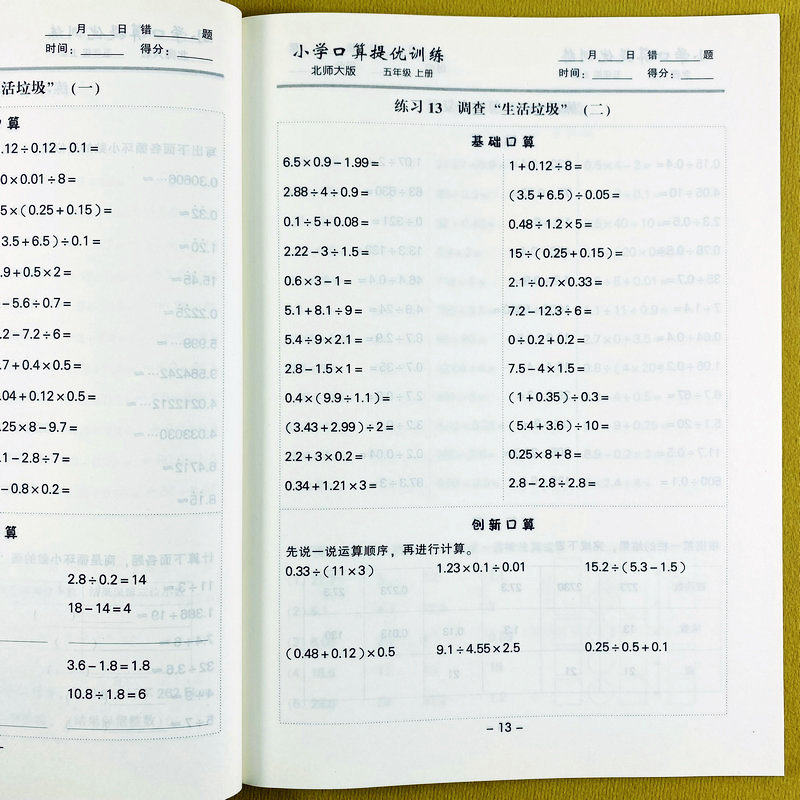 月 日 错 题
时间： 得分：
活垃圾”（一）
口算
.12÷0.12－0.1＝
0×0.01÷8＝
5×(0.25＋0.15)＝
3.5＋6.5)÷0.1＝
.9＋0.5×2＝
－5.6÷0.7＝
.2－7.2÷6＝
.7＋0.4×0.5＝
.04＋0.12×0.5＝
.25×8－9.7＝
.1－2.8÷7＝
－0.8×0.2＝
算
2.8÷0.2＝14
18－14＝4
3.6－1.8＝1.8
10.8÷1.8＝6
小学口算提优训练 月 日 错 题
北师大版 五年级 上册 时间： 得分：
练习13 调查“生活垃圾”（二）
基础口算
6.5×0.9－1.99＝ 1＋0.12÷8＝
2.88÷4÷0.9＝ (3.5＋6.5)÷0.05＝
0.1÷5＋0.08＝ 0.48÷1.2×5＝
2.22－3÷1.5＝ 15÷(0.25＋0.15)＝
0.6×3－1＝ 2.1÷0.7×0.33＝
5.1＋8.1÷9＝ 7.2－12.3÷6＝
5.4÷9×2.1＝ 0÷0.2＋0.2＝
2.8－1.5×1＝ 7.5－4×1.5＝
0.4×(9.9÷1.1)＝ (1＋0.35)÷0.3＝
(3.43＋2.99)÷2＝ (5.4＋3.6)÷10＝
2.2＋3×0.2＝ 0.25×8＋8＝
0.34＋1.21×3＝ 2.8－2.8÷2.8＝
创新口算
先说一说运算顺序，再进行计算。
0.33÷(11×3) 1.23×0.1÷0.01 15.2÷(5.3－1.5)
(0.48＋0.12)×0.5 9.1÷4.55×2.5 0.25÷0.5＋0.1
－13－